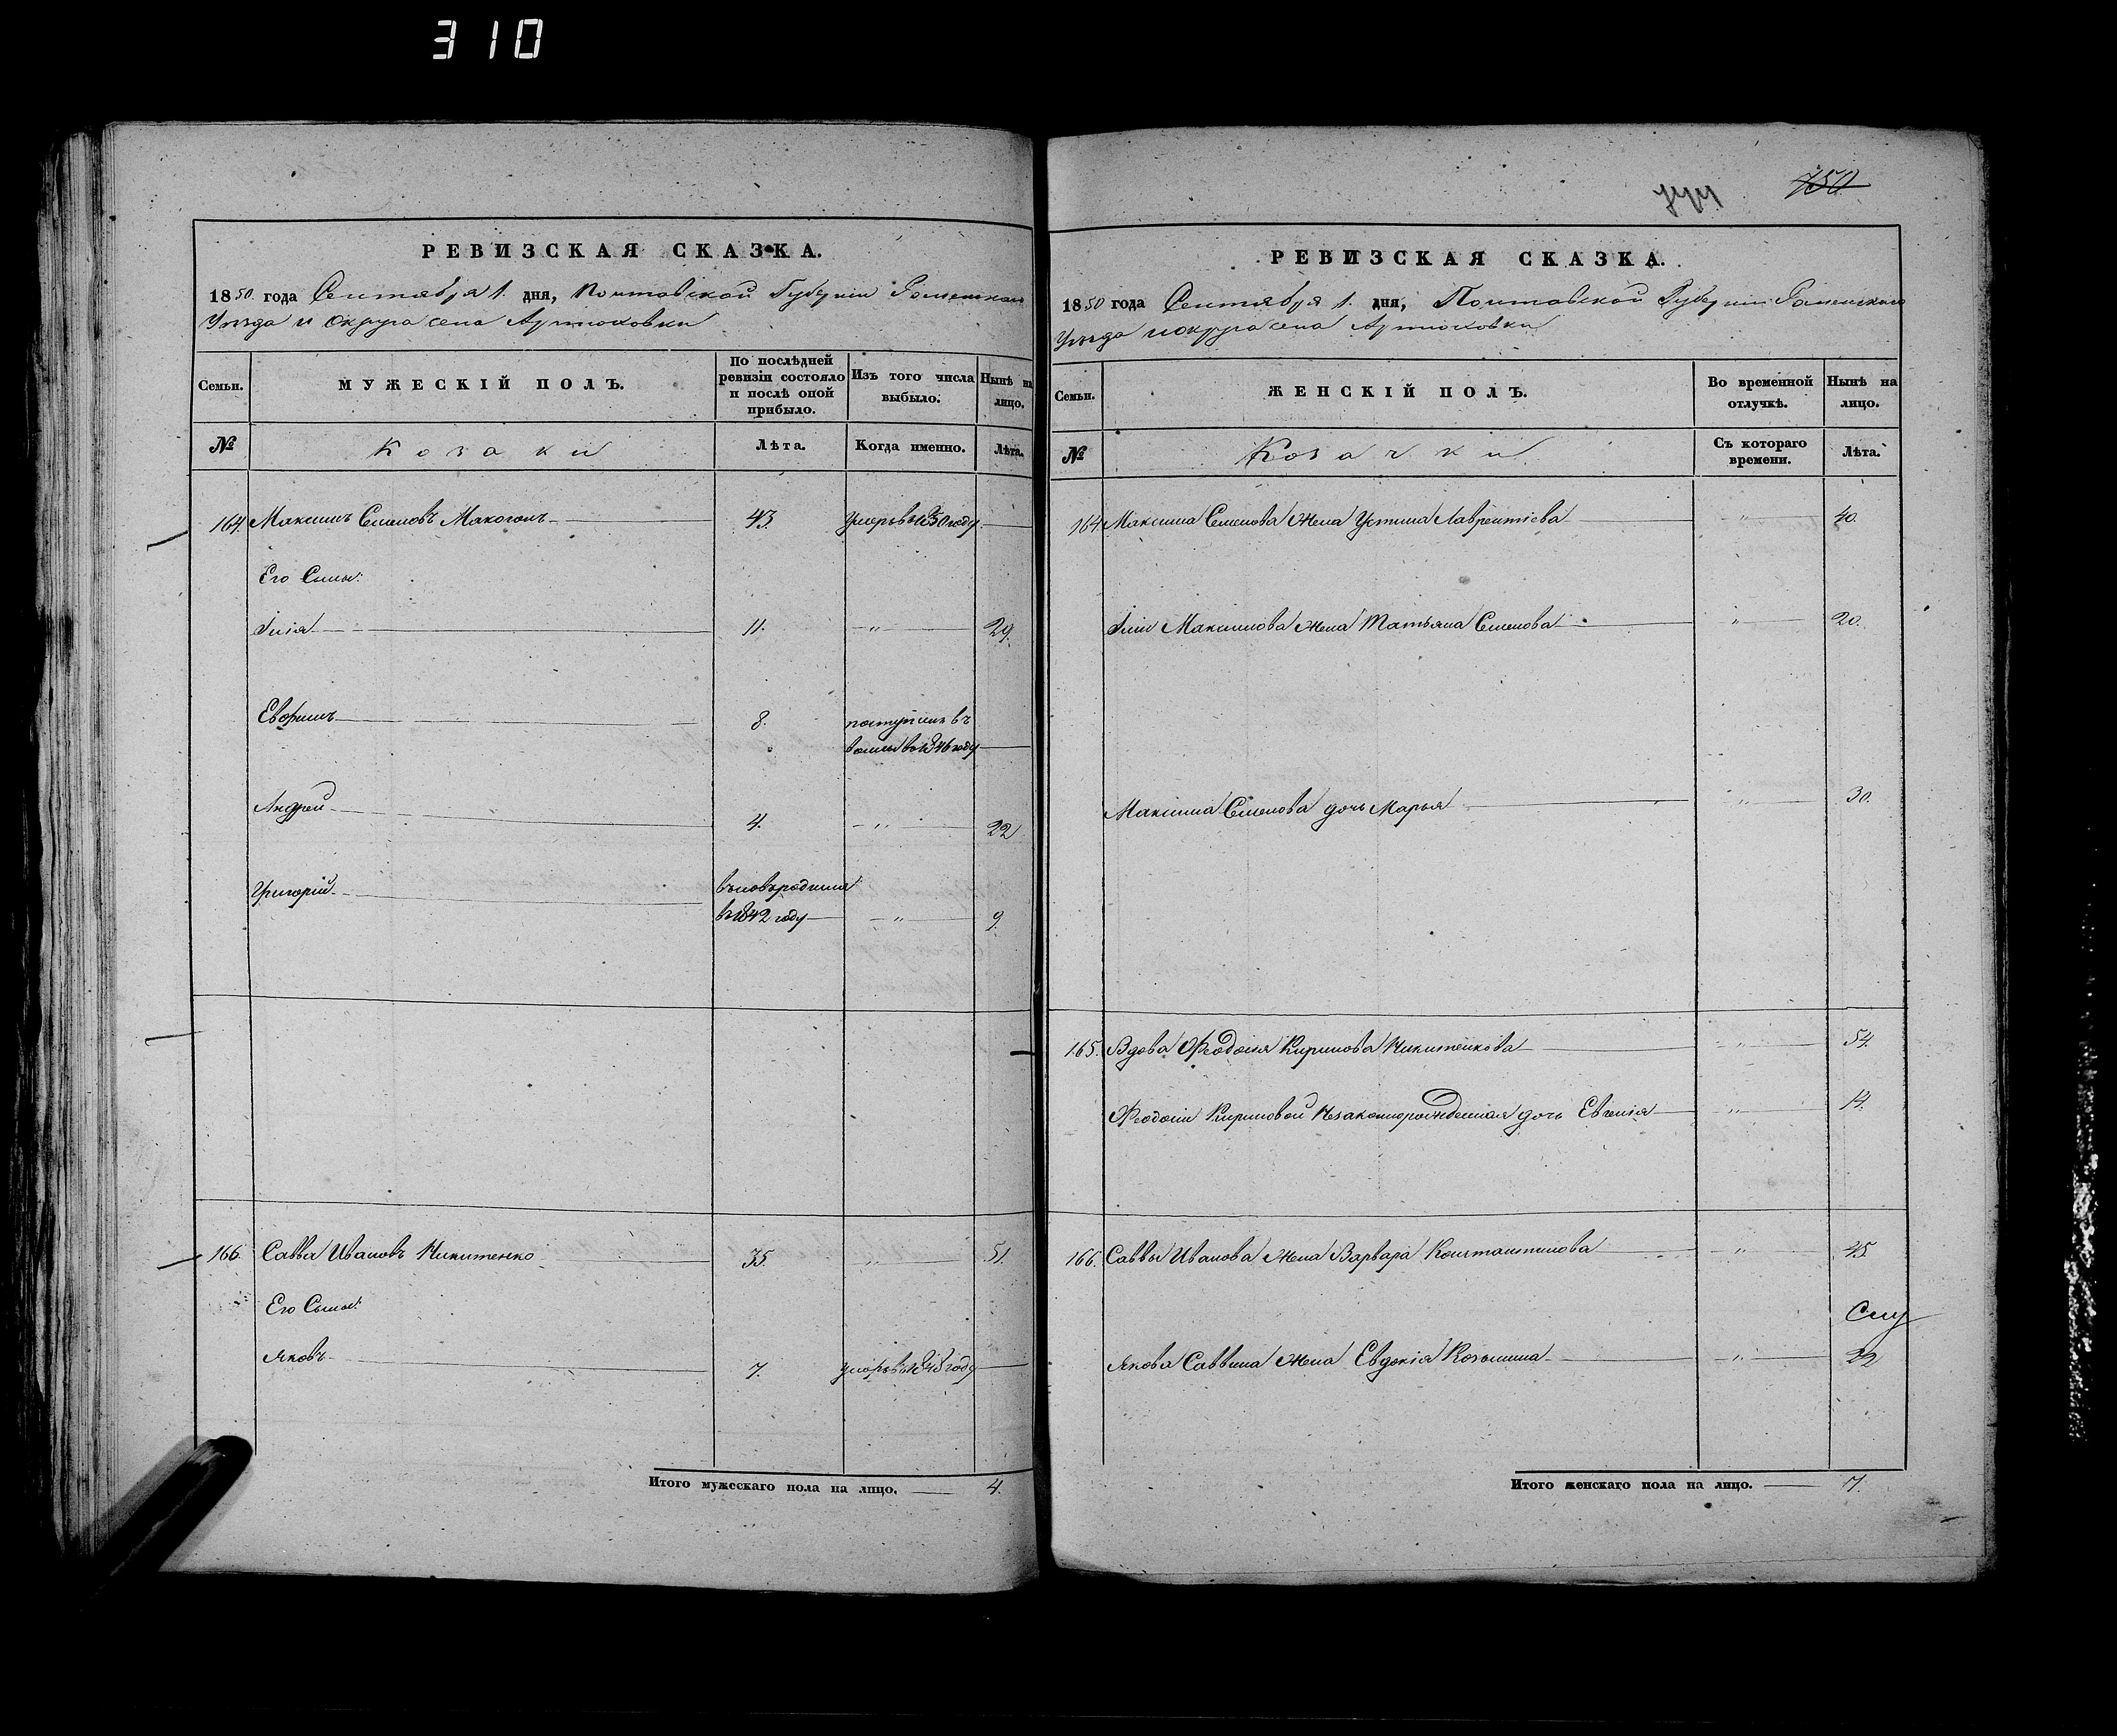 310
РЕВИЗСКАЯ СКАЗКА.
1850 года Сентября 1. дня, Полтавской Губерніи Роменскаго
Уѣзда и округа села Артюховки
Семьи.
МУЖЕСКІЙ ПОЛЪ.
По послѣдней ревизіи состояло и послѣ оной прибыло.
Изъ того числа выбыло.
Нынѣ на лицо.
№
Козаки
Лѣта.
Когда именно.
Лѣта.
164. Максимъ Семеновъ Макогонъ 43. умеръ въ 1850 году
Его Сыны:
Илія 11. „ 29.
Евфимъ 8. поступилъ въ
1846 году
Андрей 4. „ 22
Григорій
въ 1842 году „ 9.
166. Савва Ивановъ Никитенко 35. „ 51.
Его Сыны:
Яковъ 7. умеръ въ 1848 году
Итого мужескаго пола на лицо. 4.
750
РЕВИЗСКАЯ СКАЗКА.
1850 года Сентября 1. дня, Полтавской Губерніи Роменскаго
Уѣзда и округа села Артюховки
Семьи.
ЖЕНСКІЙ ПОЛЪ.
Во временной отлучкѣ.
Нынѣ на лицо.
№
Козачки
Съ котораго времени.
Лѣта.
164. Максима Семенова жена Устина Лаврентіева „ 40.
Иліи Максимова жена Татьяна Семенова „ 20.
Максима Семенова дочь Марья „ 30.
165. Вдова Феодосія Кирилова Никитенкова „ 54.
Феодосіи Кириловой Незаконорожденная дочь Евгенія „ 14.
166. Саввы Иванова жена Варвара Константинова „ 45.
Якова Саввина жена Евдокія Козьмина „ 22
Итого женскаго пола на лицо. 7.